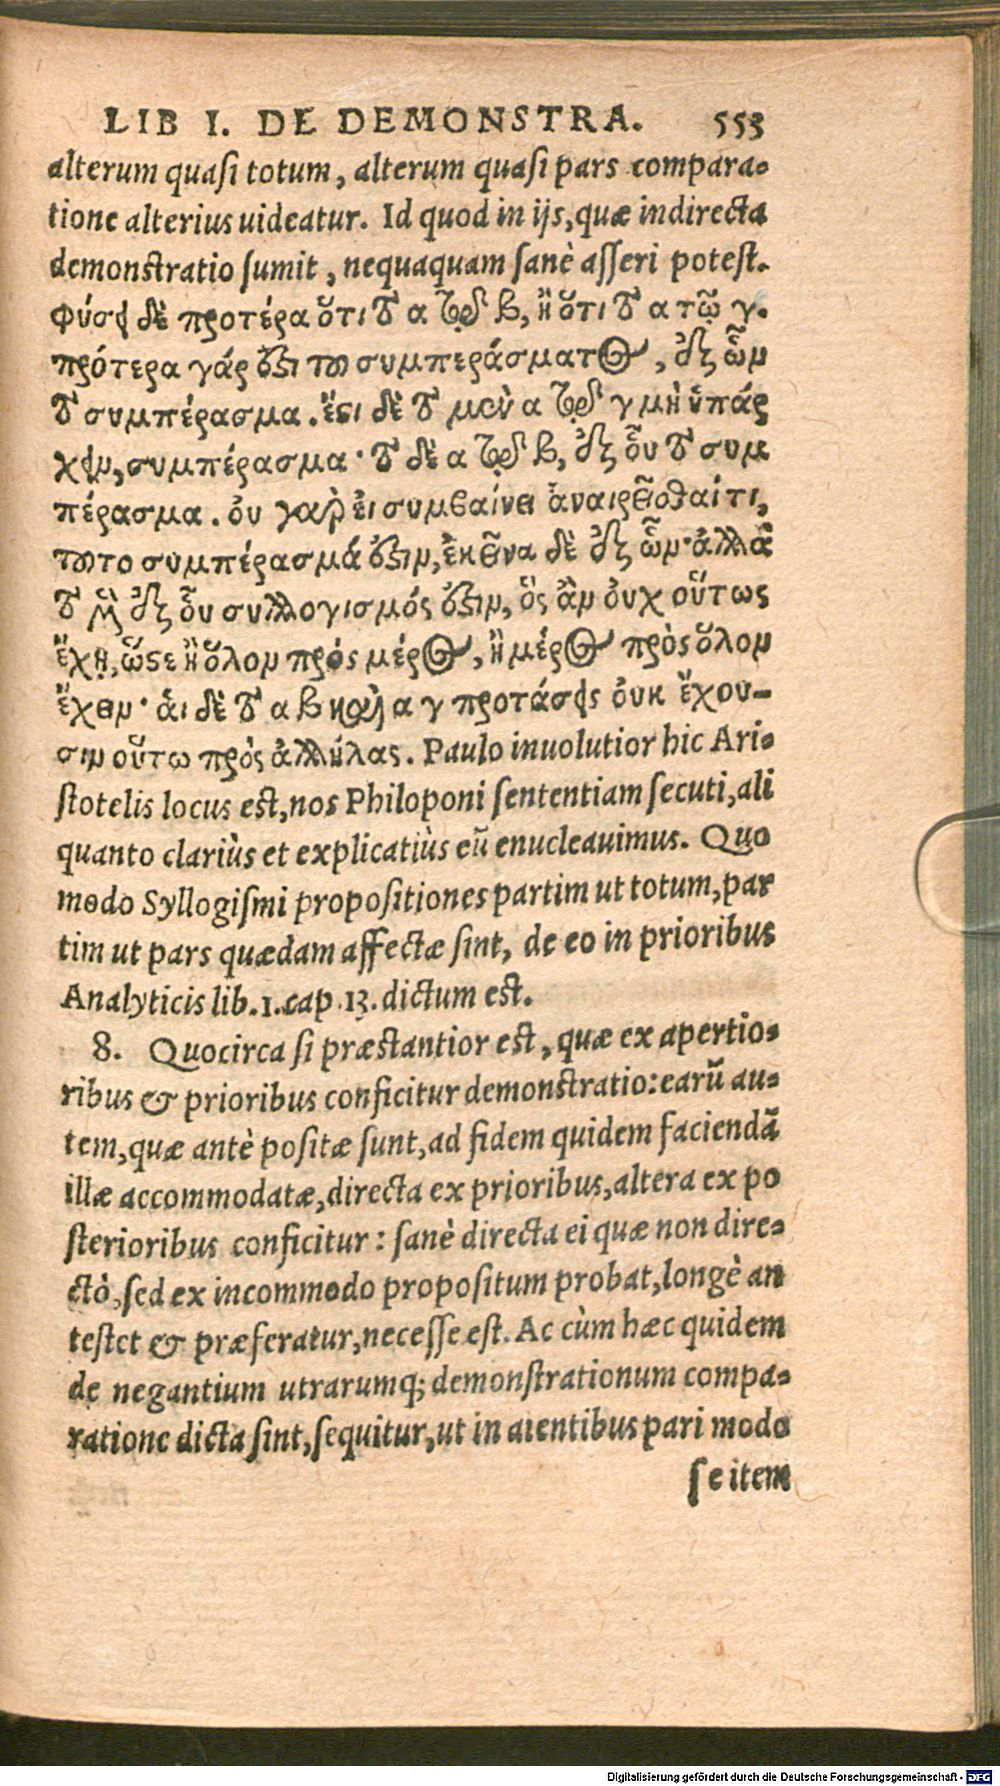 LIB I. DE DEMONSTRA. 553
alterum quasi totum, alterum quasi pars compara-
tione alterius uideatur. Id quod in ijs, quæ indirecta
demonstratio sumit, nequaquam sanè asseri potest.
φύσει δὲ προτέρα ὅτι τὸ α τῷ β, ἢ ὅτι τὸ α τῷ γ.
πρότερα γάρ ἐστι τοῦ συμπεράσματος, ἐξ ὧν
τὸ συμπέρασμα. ἔστι δὲ τὸ μὲν α τῷ γ μὴ ὑπάρ
χειν, συμπέρασμα· τὸ δὲ α τῷ β, ἐξ οὗ τὸ συμ
πέρασμα. οὐ γαρ εἰ συμβαίνει ἀναιρεῖσθαί τι,
τοῦτο συμπέρασμά ἐστιν, ἐκεῖνα δὲ ἐξ ὧν· ἀλλὰ
τὸ μὲν ἐξ οὗ συλλογισμός ἐστιν, ὃς ἂν οὐχ οὕτως
ἔχῃ, ὥστε ἢ ὅλον πρός μέρος, ἢ μέρος πρὸς ὅλον
ἔχειν· αἱ δὲ τὸ α β καὶ α γ προτάσεις οὐκ ἔχου-
σιν οὕτω πρὸς ἀλλήλας. Paulo inuolutior hic Ari-
stotelis locus est, nos Philoponi sententiam secuti, ali
quanto clariùs et explicatiùs eū enucleauimus. Quo
modo Syllogismi propositiones partim ut totum, par
tim ut pars quædam affectæ sint, de eo in prioribus
Analyticis lib. 1. cap. 13. dictum est.
8. Quocirca si præstantior est, quæ ex apertio-
ribus & prioribus conficitur demonstratio: earū au-
tem, quæ antè positæ sunt, ad fidem quidem faciendā
illæ accommodatæ, directa ex prioribus, altera ex po
sterioribus conficitur: sanè directa ei quæ non dire-
ctò, sed ex incommodo propositum probat, longè an
testet & præferatur, necesse est. Ac cùm hæc quidem
de negantium utrarumq; demonstrationum compa-
ratione dicta sint, sequitur, ut in aientibus pari modo
se item
Digitalisierung gefördert durch die Deutsche Forschungsgemeinschaft - DFG